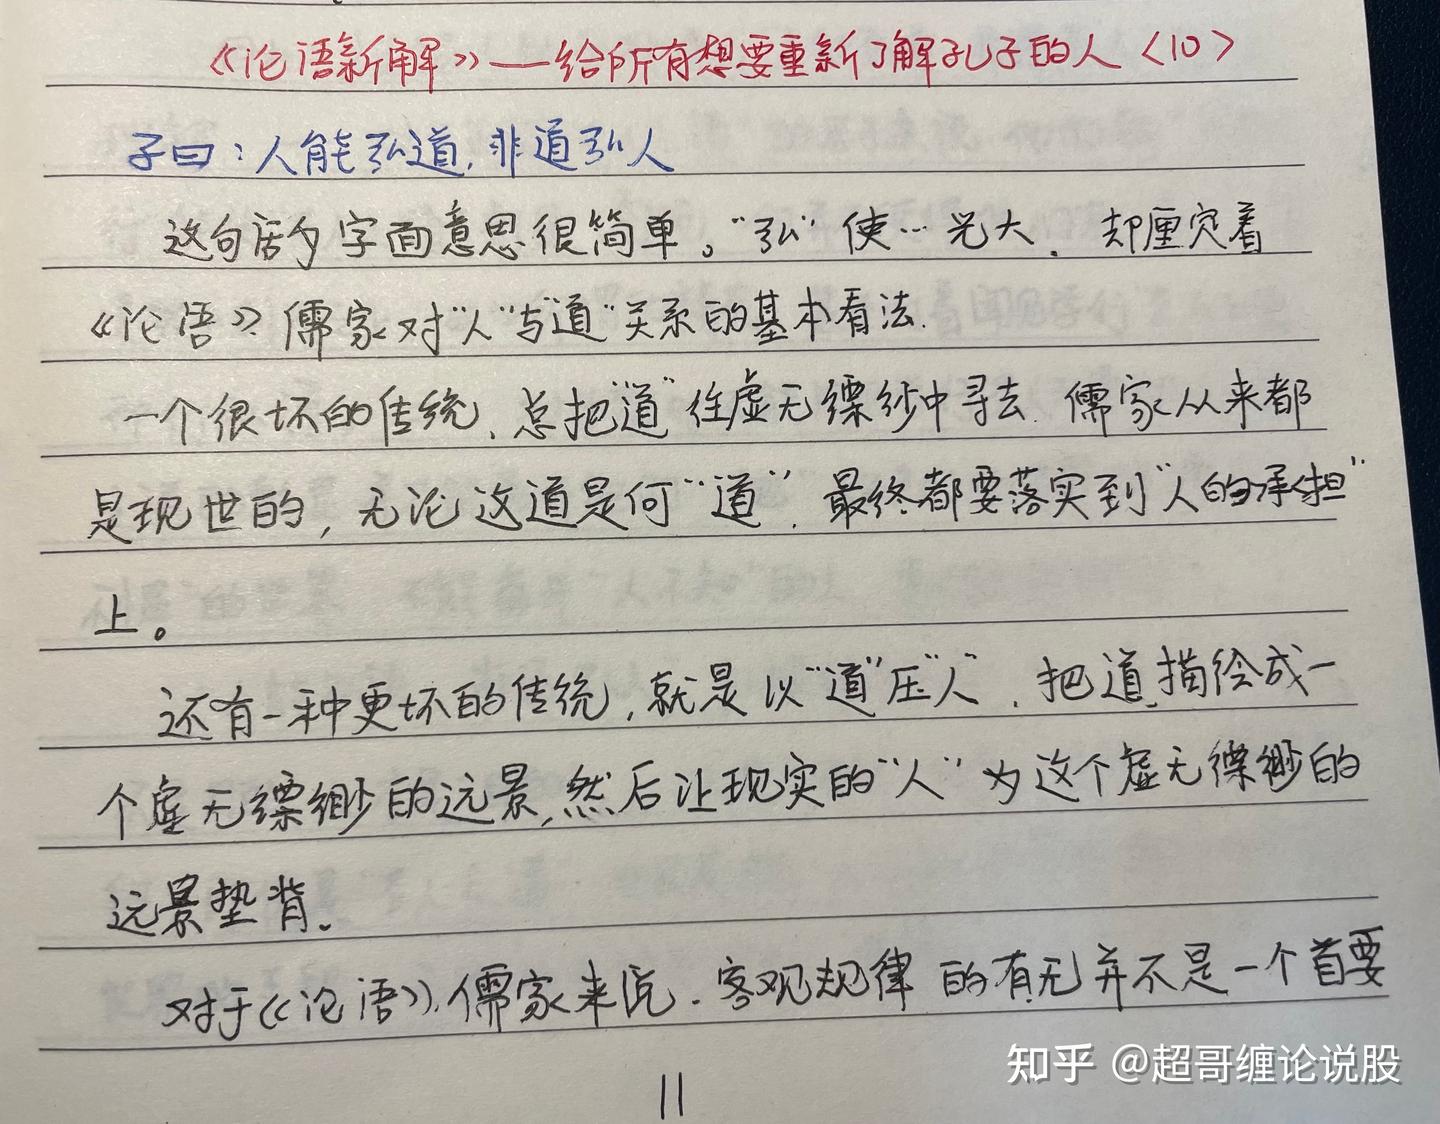 《论语新解》——给所有想要重新了解孔子的人〈10〉
子曰：人能弘道，非道弘人
这句话字面意思很简单。“弘”使…光大，却厘定着
《论语》、儒家对“人”与“道”关系的基本看法.
一个很坏的传统，总把“道”往虚无缥缈中寻去.儒家从来都
是现世的，无论这道是何“道”，最终都要落实到“人的承担”
上。
还有一种更坏的传统，就是以“道”压“人”，把道描绘成一
个虚无缥缈的远景，然后让现实的“人”为这个虚无缥缈的
远景垫背.
对于《论语》、儒家来说，客观规律的有无并不是一个首要
11
知乎 @超哥缠论说股